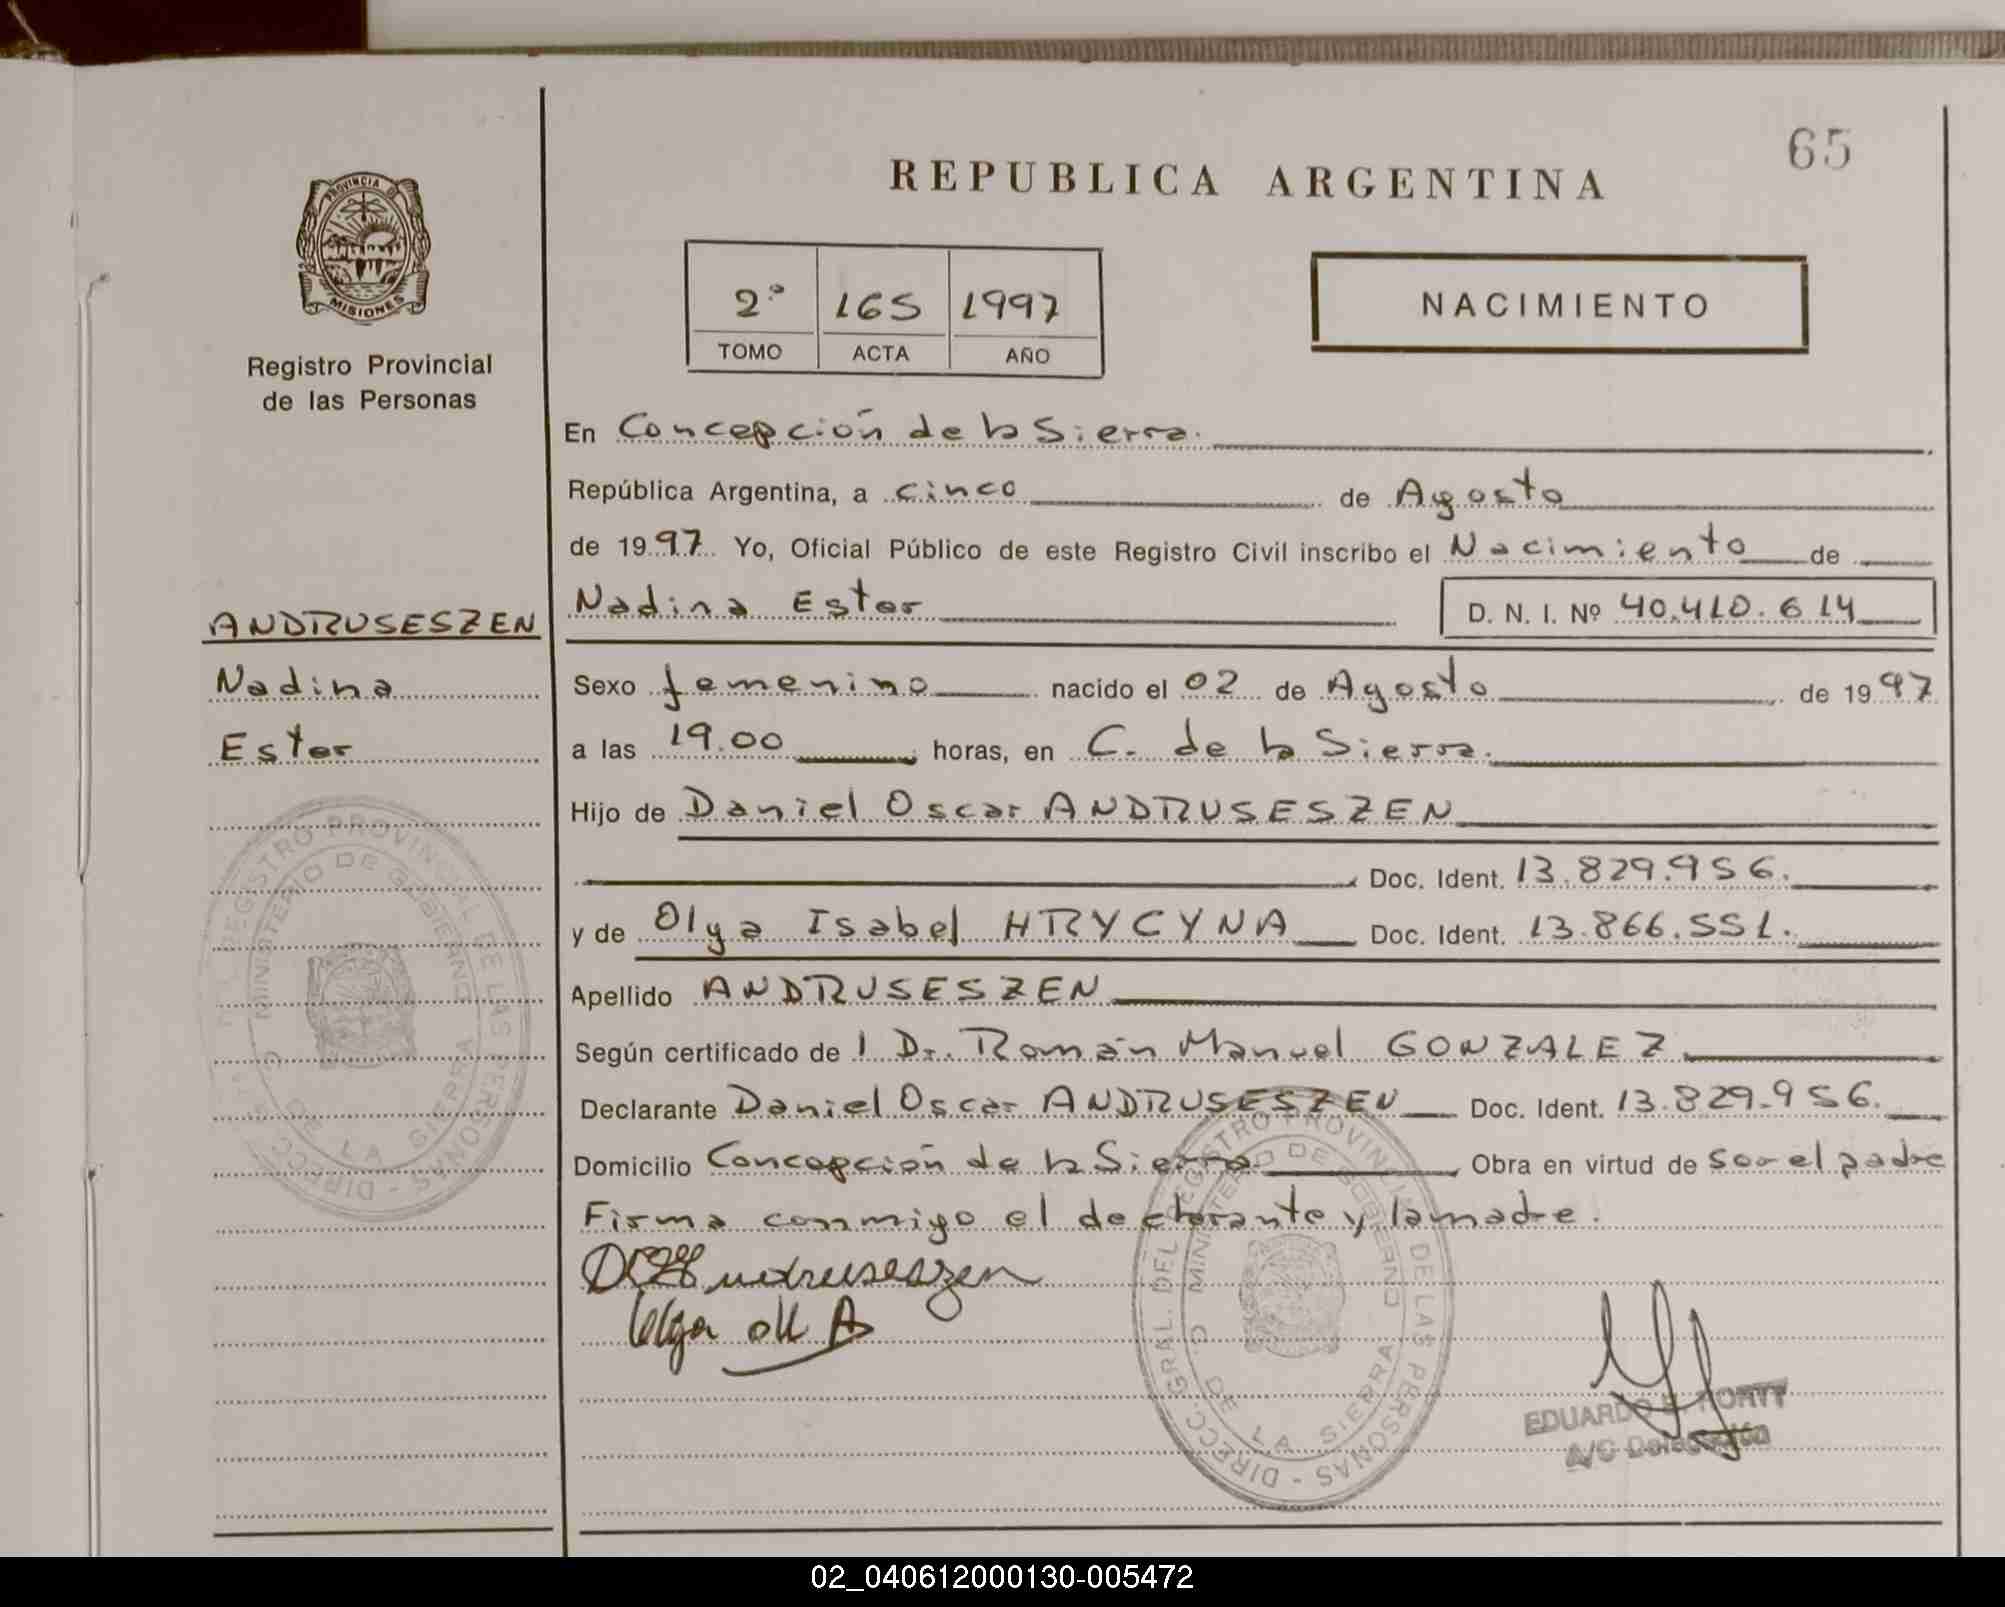 65
REPUBLICA ARGENTINA
PROVINCIA DE
MISIONES
Registro Provincial
de las Personas
2º 165 1997
TOMO ACTA AÑO
NACIMIENTO
En Concepción de la Sierra.
República Argentina, a cinco de Agosto
de 1997 Yo, Oficial Público de este Registro Civil inscribo el Nacimiento de
Nadina Ester D. N. I. Nº 40.410.614
ANDRUSESZEN
Nadina
Ester
Sexo femenino nacido el 02 de Agosto de 1997
a las 19.00 horas, en C. de la Sierra.
Hijo de Daniel Oscar ANDRUSESZEN
Doc. Ident. 13.829.956.
y de Olga Isabel HRYCYNA Doc. Ident. 13.866.551.
Apellido ANDRUSESZEN
Según certificado de l Dr. Román Manuel GONZALEZ
Declarante Daniel Oscar ANDRUSESZEN Doc. Ident. 13.829.956.
Domicilio Concepción de la Sierra Obra en virtud de ser el padre
Firma conmigo el declarante y la madre.
DIRECC. GRAL. DEL REGISTRO PROVINCIAL DE LAS PERSONAS
MINISTERIO DE GOBIERNO
C. DE LA SIERRA
DIRECC. GRAL. DEL REGISTRO PROVINCIAL DE LAS PERSONAS
MINISTERIO DE GOBIERNO
C. DE LA SIERRA
EDUARDO
A/C Delegación
02_040612000130-005472